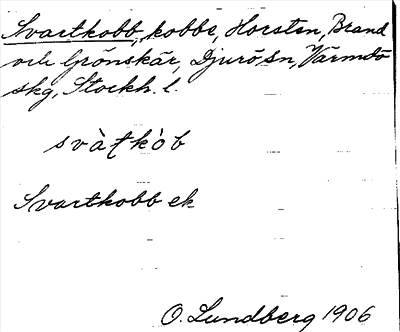 Svartkobb, kobbe, Horsten, Brand
och Grönskär, Djurö sn, Värmdö
skg, Stockh. l.
svàţkòb
Svartkobb ek
O. Lundberg 1906